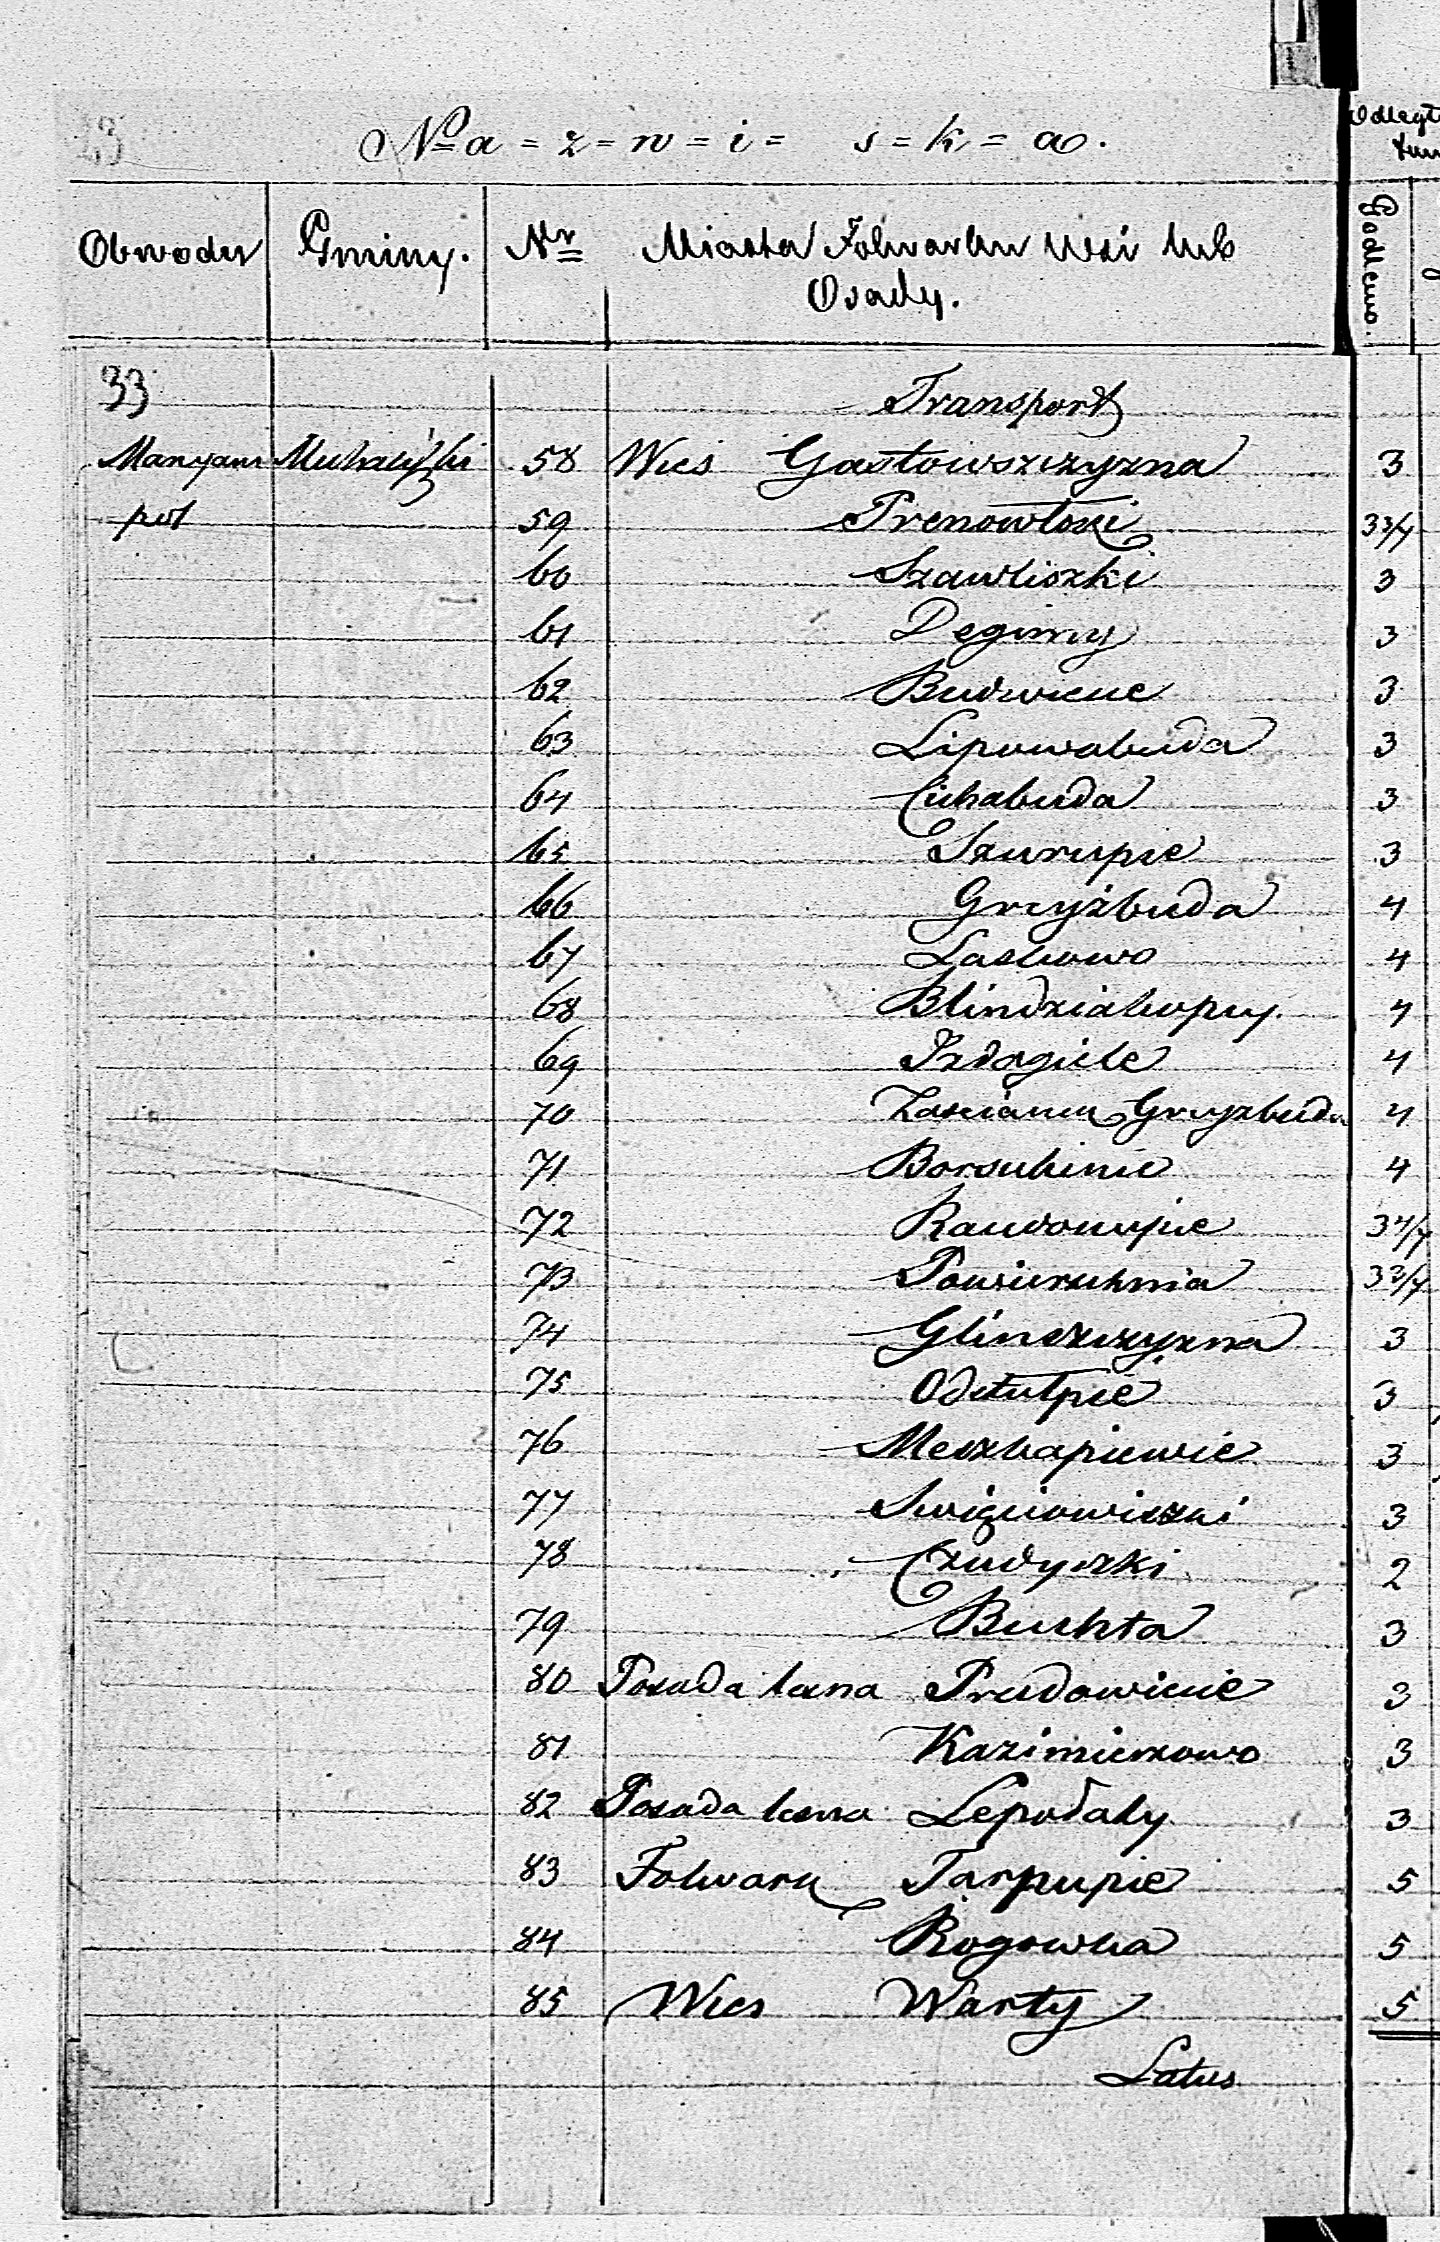 N a = z = w = i = s = k = a.
Odległ
Obwodu Gminy. Nr Miasta Folwarku Wsi lub
Osady.
Godlewo.
33 Transport
Maryam Michaliski 58 Wieś Gastowszczyzna 3
pol 59 Prenowłoki 3 3/4
60 Szawliszki 3
61 Degimy 3
62 Budwiecie 3
63 Lipowabuda 3
64 Cichabuda 3
65 Szurupie 3
66 Gryźbuda 4
67 Laskowo 4
68 Blindziakopy 4
69 Izdagiele 4
70 Zascianek Gryzbuda 4
71 Borsukinie 4
72 Raudonupie
73 Powierzchnia
74 Glinszczyzna 3
75 Odełułpie 3
76 Meszkapiewie 3
77 3
78 Czudyszki 2
79 Buchta 3
80 Posada lesna Prudowicie 3
81 Kazimierzowo 3
82 Posada lesna Lepodaty 3
83 Folwark Tarpupie 5
84 Rogowka 5
85 Wies Warty 5
Latus